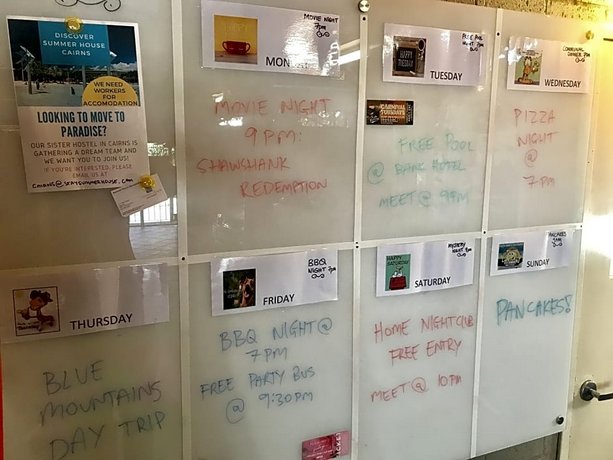 DISCOVER
SUMMER HOUSE
CAIRNS
WE NEED
WORKERS
FOR
ACCOMODATION
LOOKING TO MOVE TO
PARADISE?
OUR SISTER HOSTEL IN CAIRNS IS
GATHERING A DREAM TEAM AND
WE WANT YOU TO JOIN US!
IF YOU'RE INTERESTED, PLEASE
EMAIL US AT
MOVIE NIGHT
7pm
MONDAY
MOVIE NIGHT
9PM:
SHAWSHANK
REDEMPTION
TUESDAY
FREE POOL
@ BANK HOTEL
MEET @ 9PM
WEDNESDAY
PIZZA
NIGHT
@
7 PM
THURSDAY
BLUE
MOUNTAINS
DAY TRIP
BBQ
NIGHT 7pm
FRIDAY
BBQ NIGHT @
7PM
FREE PARTY BUS
@ 9:30PM
MYSTERY
NIGHT 9pm
SATURDAY
HOME NIGHTCLUB
FREE ENTRY
MEET @ 10PM
PANCAKES
SUNDAY
PANCAKES!